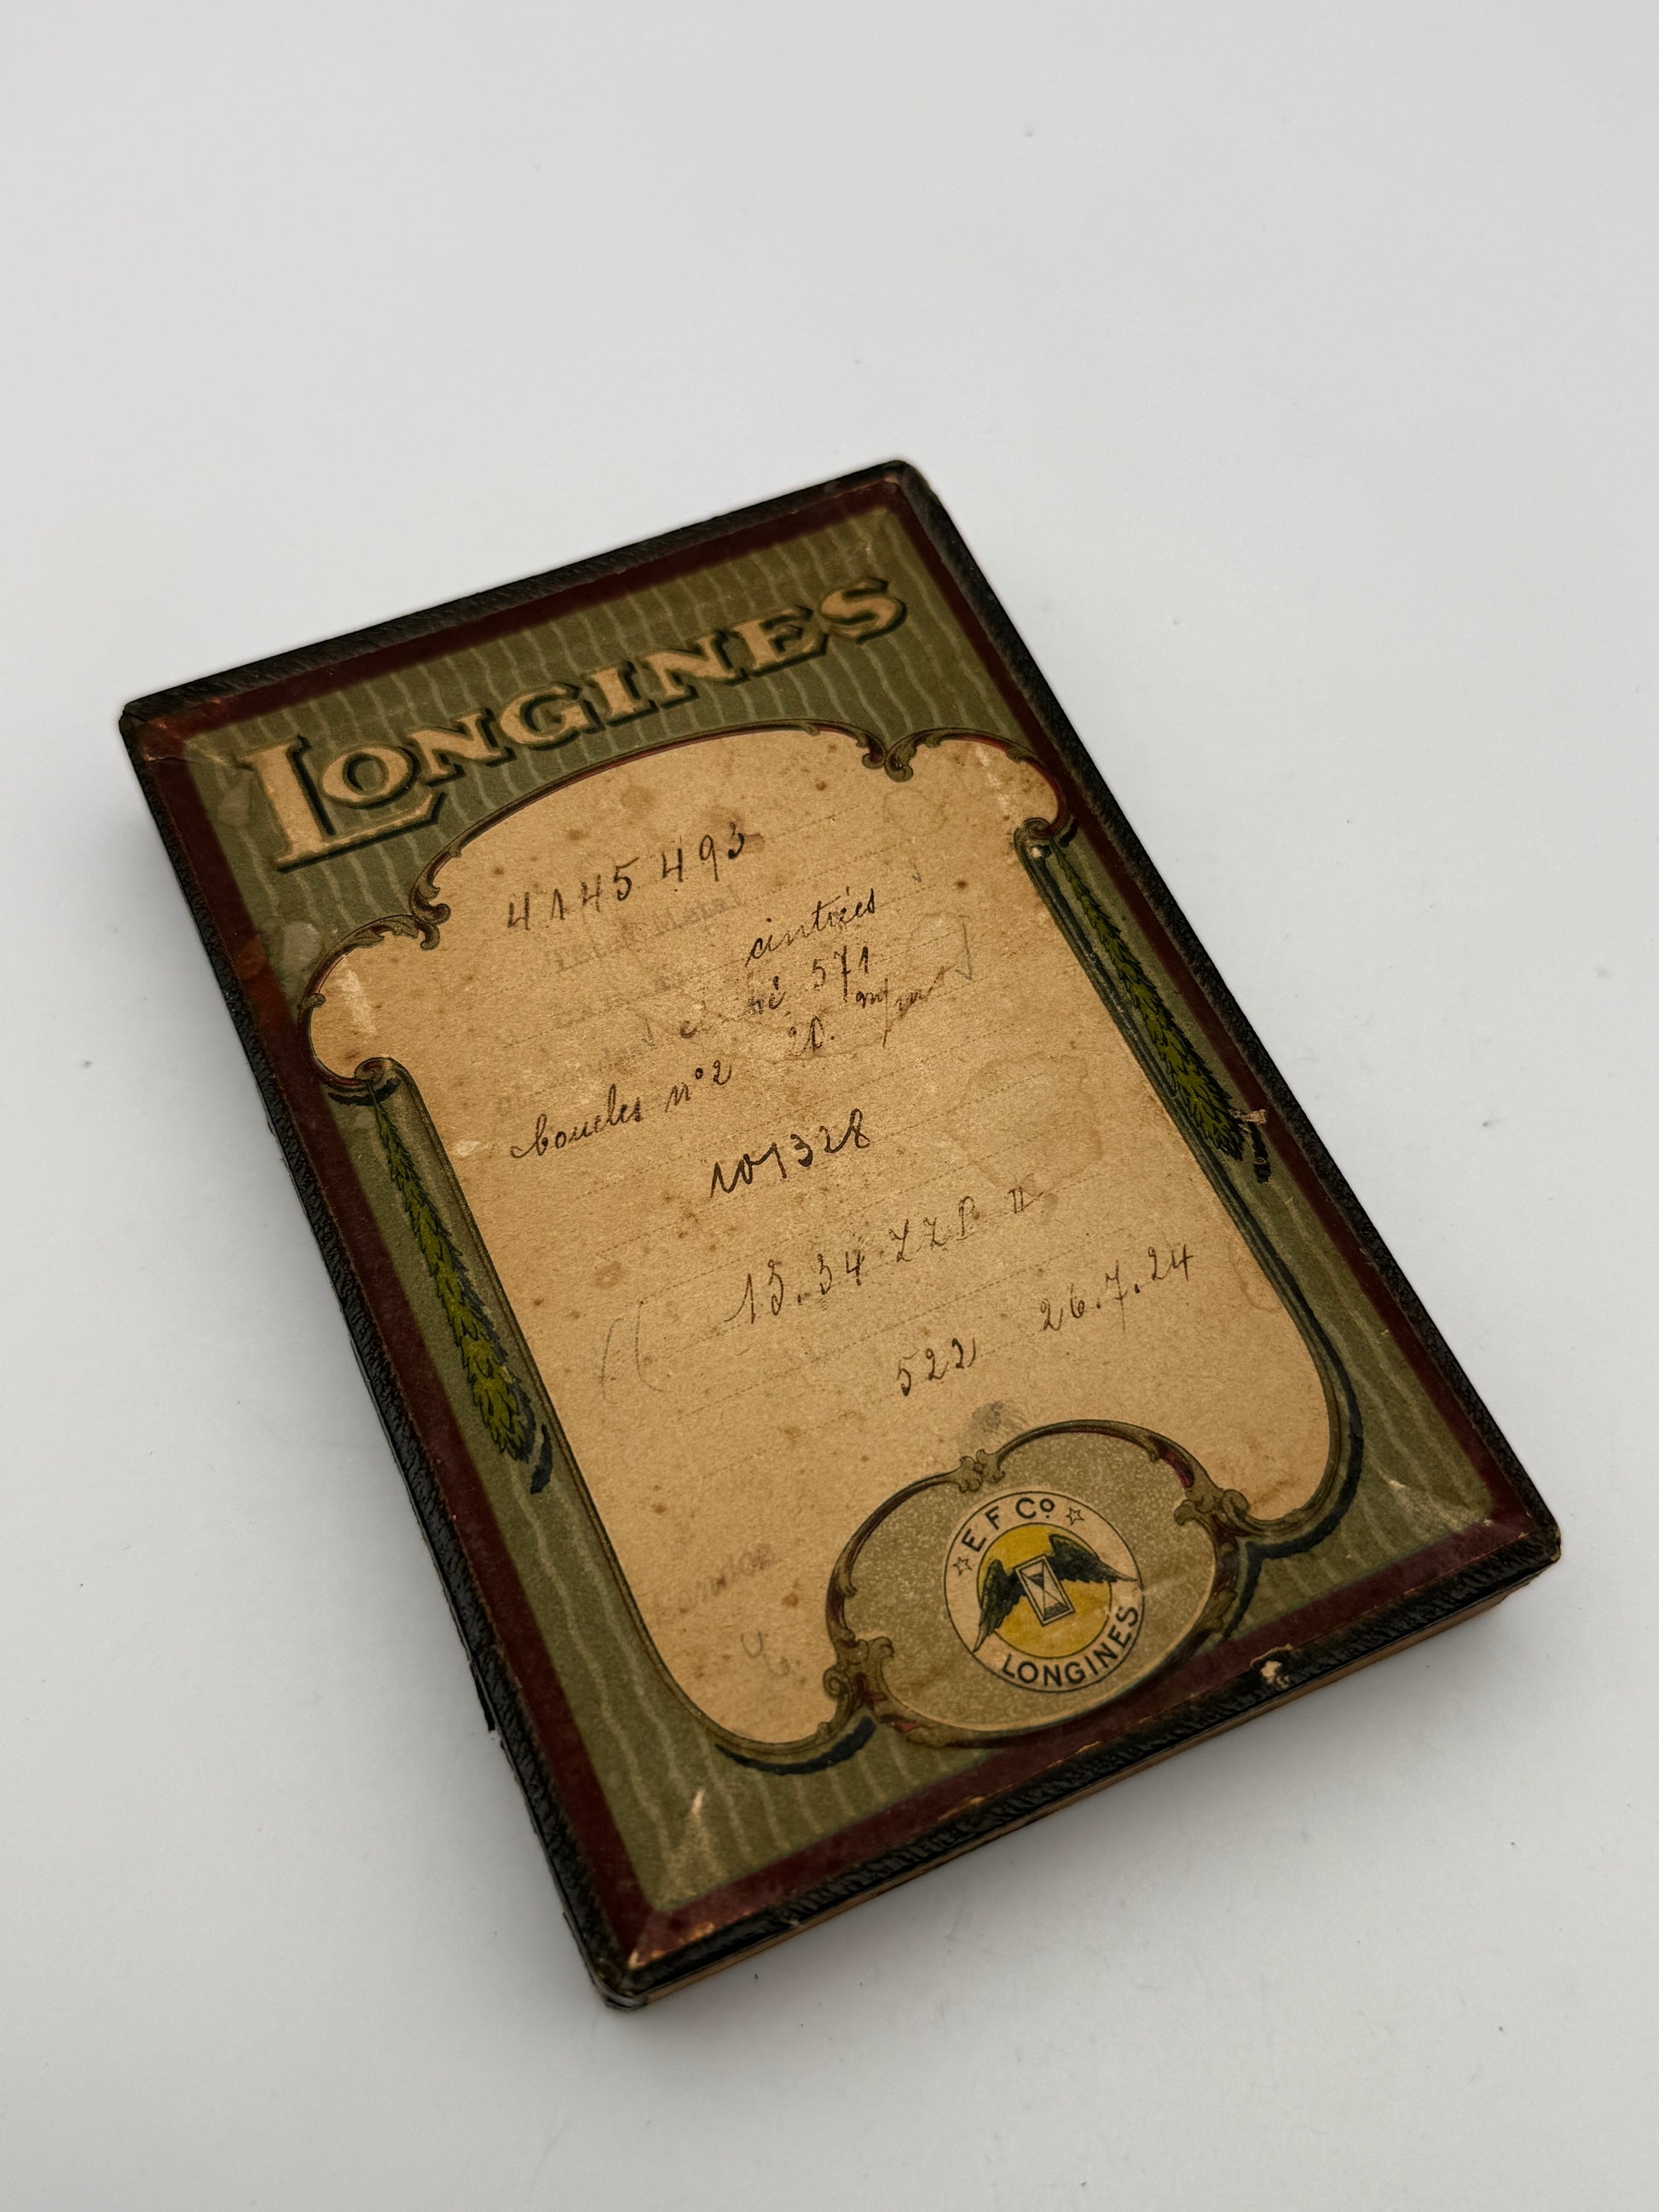 LONGINES
4145493
cintrées
571
boucles n° 2 20. m/m
101328
13.34 ZZP II
522 26.7.24
E F Co
LONGINES